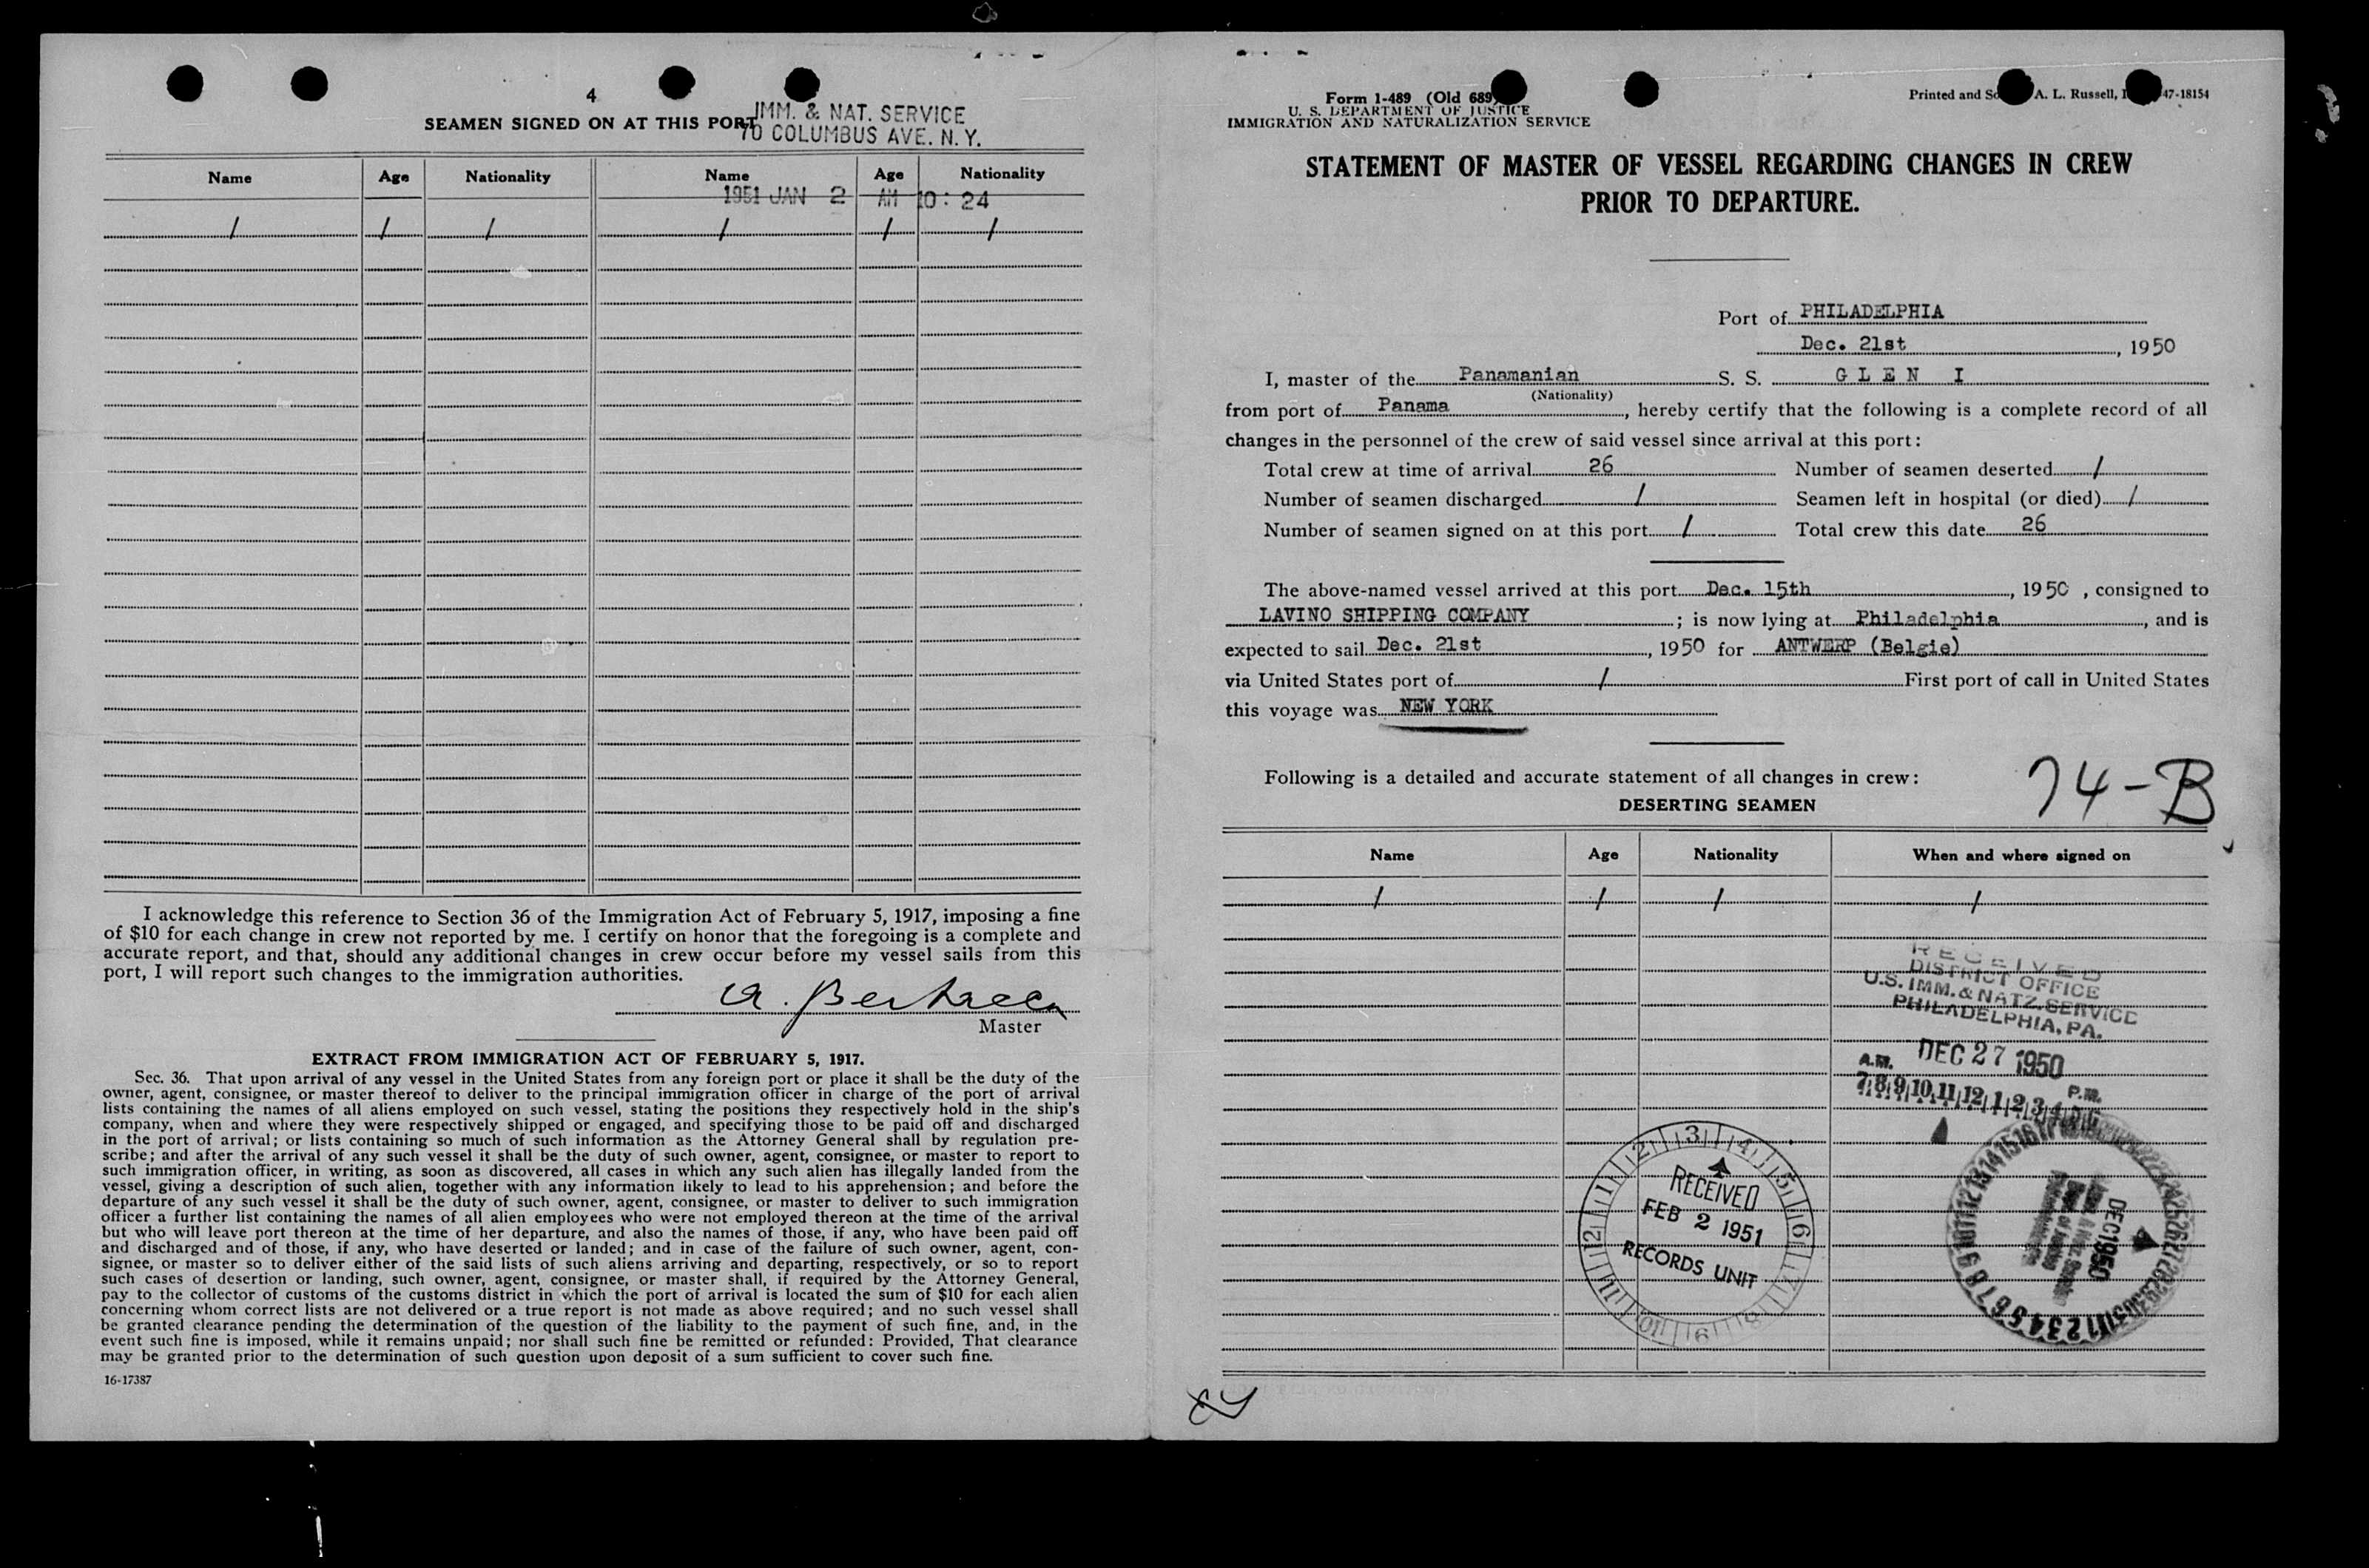 4
SEAMEN SIGNED ON AT THIS PORT
IMM. & NAT. SERVICE
70 COLUMBUS AVE. N.Y.
Name Age Nationality Name Age Nationality
1951 JAN 2 AM 10: 24
/ / / / / /
I acknowledge this reference to Section 36 of the Immigration Act of February 5, 1917, imposing a fine
of $10 for each change in crew not reported by me. I certify on honor that the foregoing is a complete and
accurate report, and that, should any additional changes in crew occur before my vessel sails from this
port, I will report such changes to the immigration authorities.
Master
EXTRACT FROM IMMIGRATION ACT OF FEBRUARY 5, 1917.
Sec. 36. That upon arrival of any vessel in the United States from any foreign port or place it shall be the duty of the
owner, agent, consignee, or master thereof to deliver to the principal immigration officer in charge of the port of arrival
lists containing the names of all aliens employed on such vessel, stating the positions they respectively hold in the ship's
company, when and where they were respectively shipped or engaged, and specifying those to be paid off and discharged
in the port of arrival; or lists containing so much of such information as the Attorney General shall by regulation pre-
scribe; and after the arrival of any such vessel it shall be the duty of such owner, agent, consignee, or master to report to
such immigration officer, in writing, as soon as discovered, all cases in which any such alien has illegally landed from the
vessel, giving a description of such alien, together with any information likely to lead to his apprehension; and before the
departure of any such vessel it shall be the duty of such owner, agent, consignee, or master to deliver to such immigration
officer a further list containing the names of all alien employees who were not employed thereon at the time of the arrival
but who will leave port thereon at the time of her departure, and also the names of those, if any, who have been paid off
and discharged and of those, if any, who have deserted or landed; and in case of the failure of such owner, agent, con-
signee, or master so to deliver either of the said lists of such aliens arriving and departing, respectively, or so to report
such cases of desertion or landing, such owner, agent, consignee, or master shall, if required by the Attorney General,
pay to the collector of customs of the customs district in which the port of arrival is located the sum of $10 for each alien
concerning whom correct lists are not delivered or a true report is not made as above required; and no such vessel shall
be granted clearance pending the determination of the question of the liability to the payment of such fine, and, in the
event such fine is imposed, while it remains unpaid; nor shall such fine be remitted or refunded: Provided, That clearance
may be granted prior to the determination of such question upon deposit of a sum sufficient to cover such fine.
16-17387
Form 1-489 (Old 689)
U. S. DEPARTMENT OF JUSTICE
IMMIGRATION AND NATURALIZATION SERVICE
Printed and A. L. Russell, 47-18154
STATEMENT OF MASTER OF VESSEL REGARDING CHANGES IN CREW
PRIOR TO DEPARTURE.
Port of PHILADELPHIA
Dec. 21st, 1950
I, master of the Panamanian S. S. GLEN I
(Nationality)
from port of Panama, hereby certify that the following is a complete record of all
changes in the personnel of the crew of said vessel since arrival at this port:
Total crew at time of arrival 26 Number of seamen deserted /
Number of seamen discharged / Seamen left in hospital (or died) /
Number of seamen signed on at this port / Total crew this date 26
The above-named vessel arrived at this port Dec. 15th, 1950, consigned to
LAVINO SHIPPING COMPANY; is now lying at Philadelphia, and is
expected to sail Dec. 21st, 1950 for ANTWERP (Belgie)
via United States port of / First port of call in United States
this voyage was NEW YORK
Following is a detailed and accurate statement of all changes in crew:
74-B
DESERTING SEAMEN
Name Age Nationality When and where signed on
/ / / /
RECEIVED
DISTRICT OFFICE
U.S. IMM. & NATZ. SERVICE
PHILADELPHIA, PA.
DEC 27 1950
A.M. P.M.
7 8 9 10 11 12 1 2 3 4 5 6
RECEIVED
FEB 2 1951
RECORDS UNIT
1 2 3 4 5 6 7 8 9 10 11 12
DEC 1950